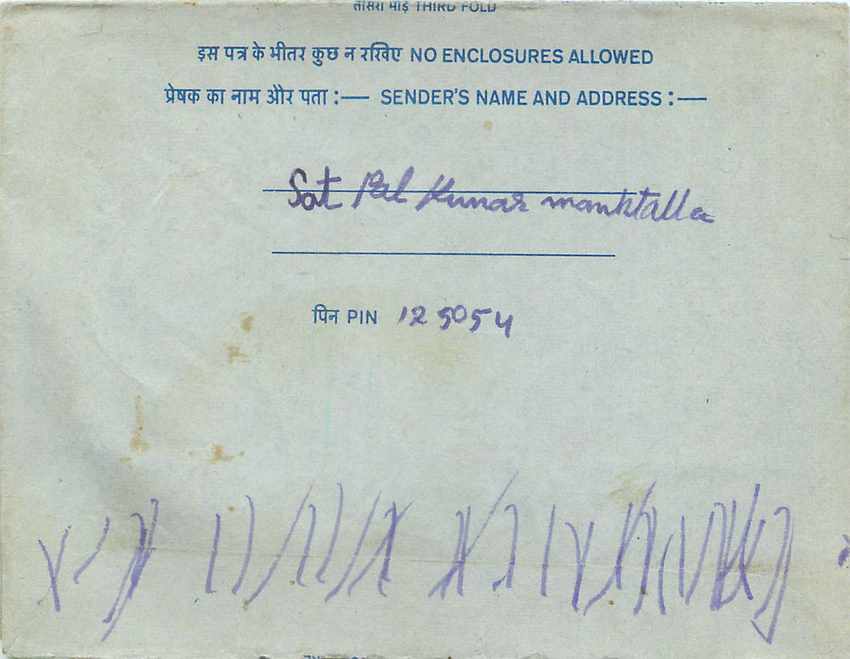 तीसरा मोड़ THIRD FOLD
इस पत्र के भीतर कुछ न रखिए NO ENCLOSURES ALLOWED
प्रेषक का नाम और पता :— SENDER'S NAME AND ADDRESS :—
Sat Pal Kumar manktalla
पिन PIN 125054